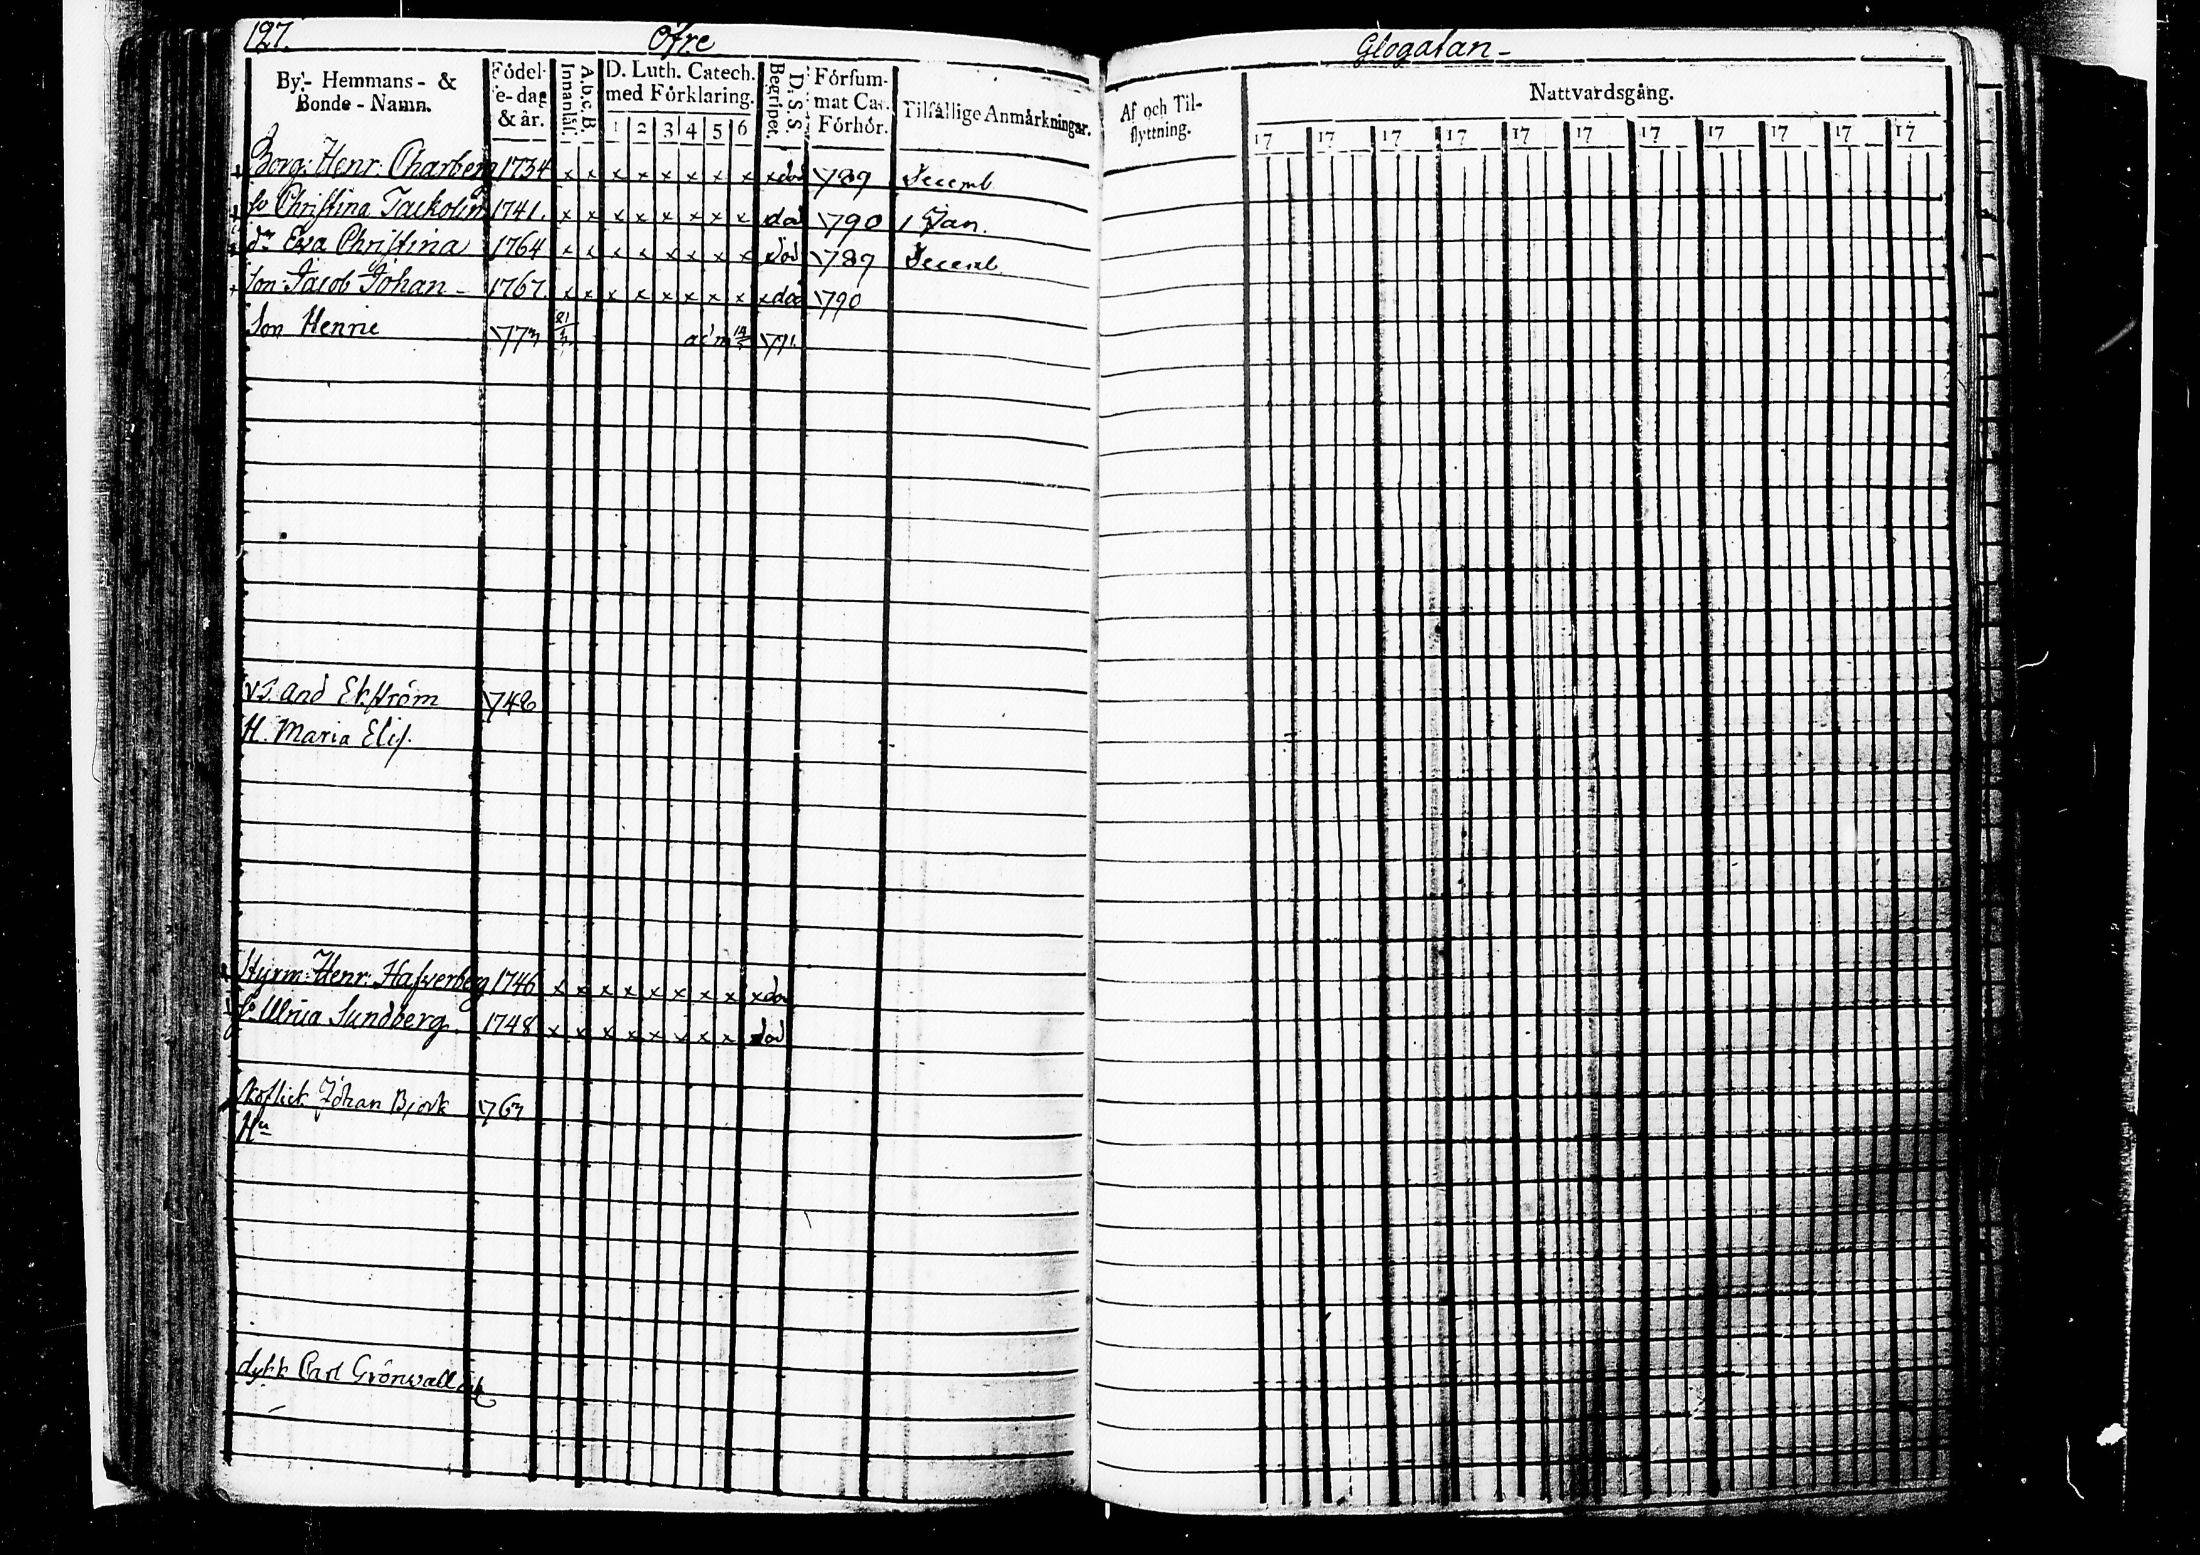 127.
Ofre
Glogatan
By:- Hemmans - & Bonde - Namn.
Födel-se-dag & år.
Innanläs.
A,b,c,B.
D. Luth. Catech. med Förklaring.
1 2 3 4 5 6
Begripet.
D. S. S.
Försummat Cat. Förhör.
Tilfällige Anmärkningar.
Af och Til-flyttning.
Nattvardsgång.
17 17 17 17 17 17 17 17 17 17 17
Borg: Henr: Charberg 1734 x x x x x x x x x död 1789 Decemb
Christina 1741. x x x x x x x x död 1790 1 Jan.
dr Eva Christina 1764 x x x x x x x x död 1789 Decemb
Son Jacob Johan 1767. x x x x x x x x x död 1790
Son Henric 1773 adm 1791.
And Ekström
H. Maria Elis.
Styrm: Henr: Hafverberg 1746 x x x x x x x x x död
Ulrica Sundberg 1748 x x x x x x x x död
Johan Björk 1763
Hu
Carl Grönwall